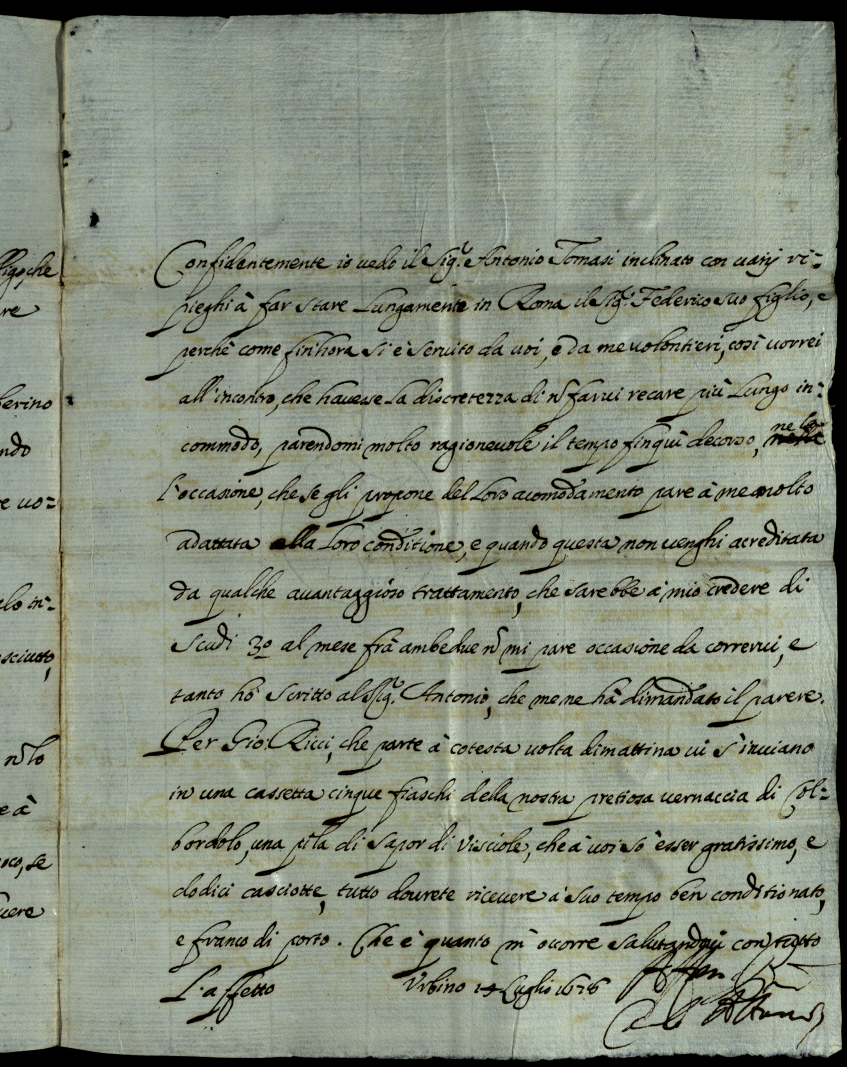 figo, che
re
berino
ndo
e uo=
alo in=
osciutto,
nõ lo
e à
oco, se
uere
Confidentemente io uedo il Sig.r Antonio Tomasi inclinato con uarij ri=
pieghi à far stare Lungamente in Roma il Sig.r Federico suo figlio, e
perchè come finhora si è seruito da uoi, e da me uolontieri, così uorrei
all'incontro, che hauesse la discretezza di nõ farui recare più Lungo in=
commodo, parendomi molto ragioneuole il tempo finqui decorso, ne la
l'occasione, che se gli propone del Loro acomodamento pare à me molto
adattata alla Loro conditione, e quando questa non uenghi acreditata
da qualche auantaggioso trattamento, che sarebbe à mio credere di
scudi 30 al mese frà ambedue nõ mi pare occasione da correrui, e
tanto hò scritto al Sig.r Antonio, che me ne hà dimandato il parere.
Per Gio: Ricci, che parte à cotesta uolta dimattina ui s'inuiano
in una cassetta cinque fiaschi della nostra pretiosa uernaccia di Col=
bordolo, una pila di sapor di Visciole, che à uoi sò esser gratissimo, e
dodici casciotte, tutto dourete riceuere à suo tempo ben conditionato,
e franco di porto. Che è quanto m'ocorre salutandoui con tutto
L'affetto Vrbino 14 Luglio 1676